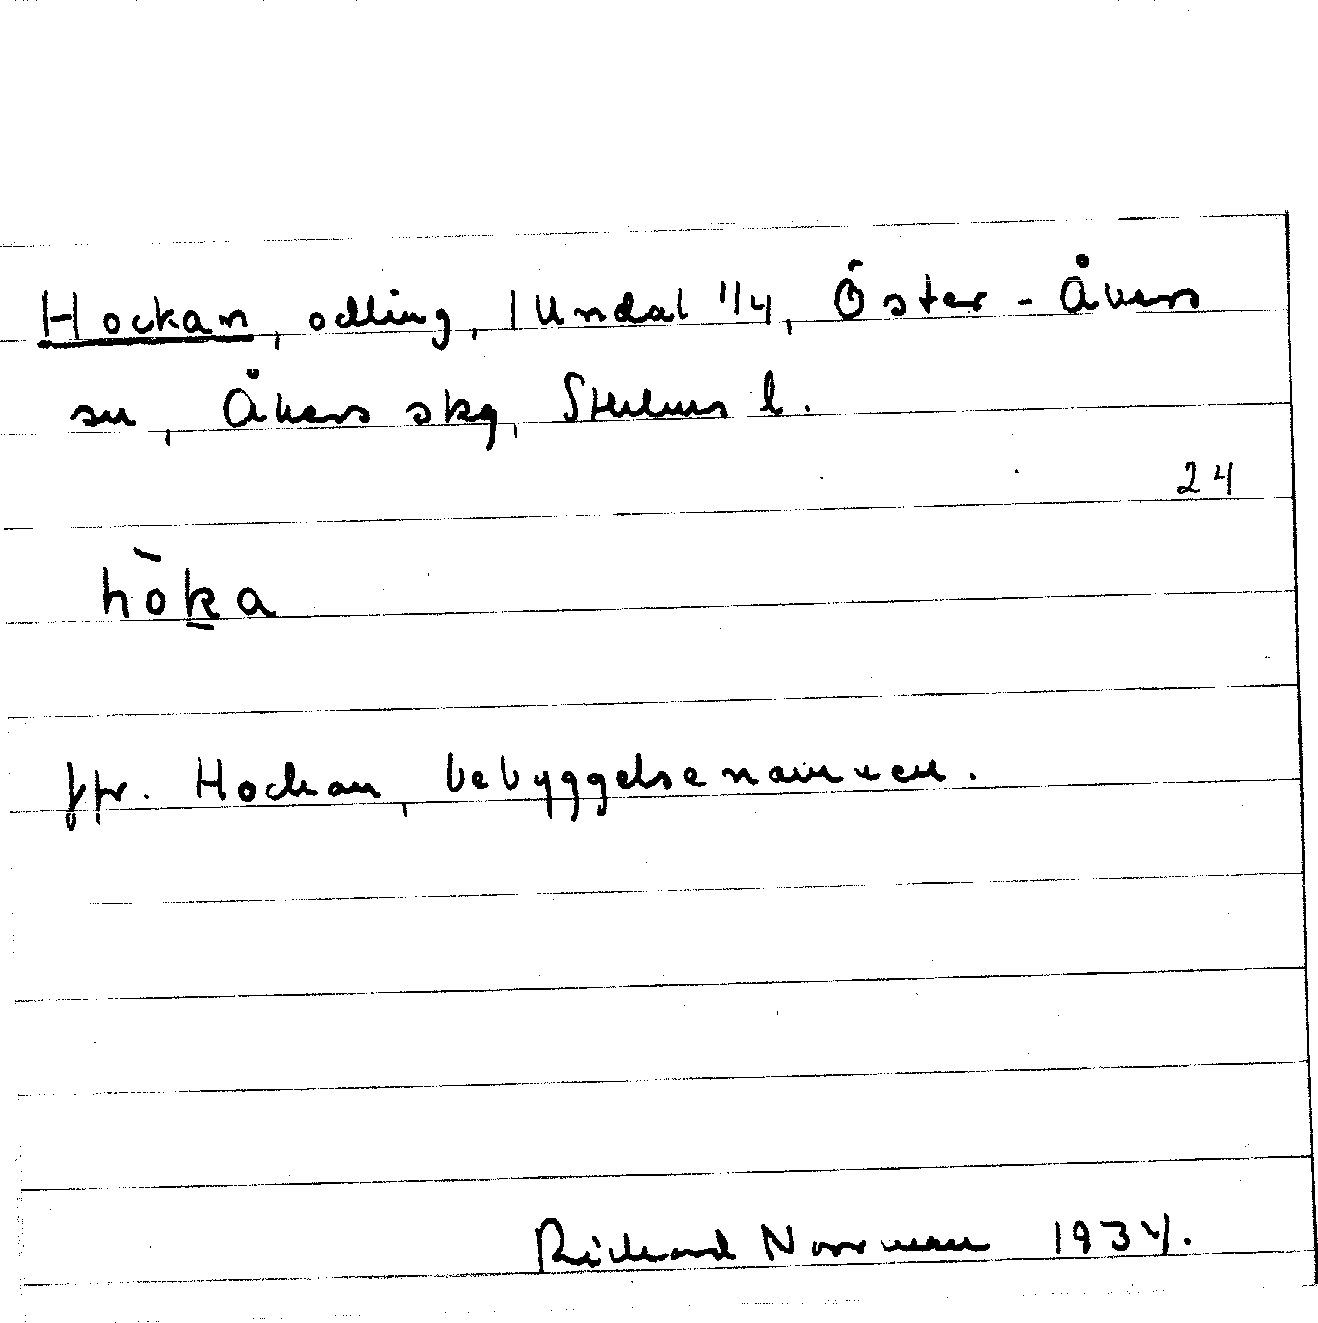 Hockan, odling, 1 Undal 1/4, Öster-Åkers
sn, Åkers skg, Sthlms l.
24
hòka
jfr. Hockan, bebyggelsenamnen.
Richard Norrman 1934.